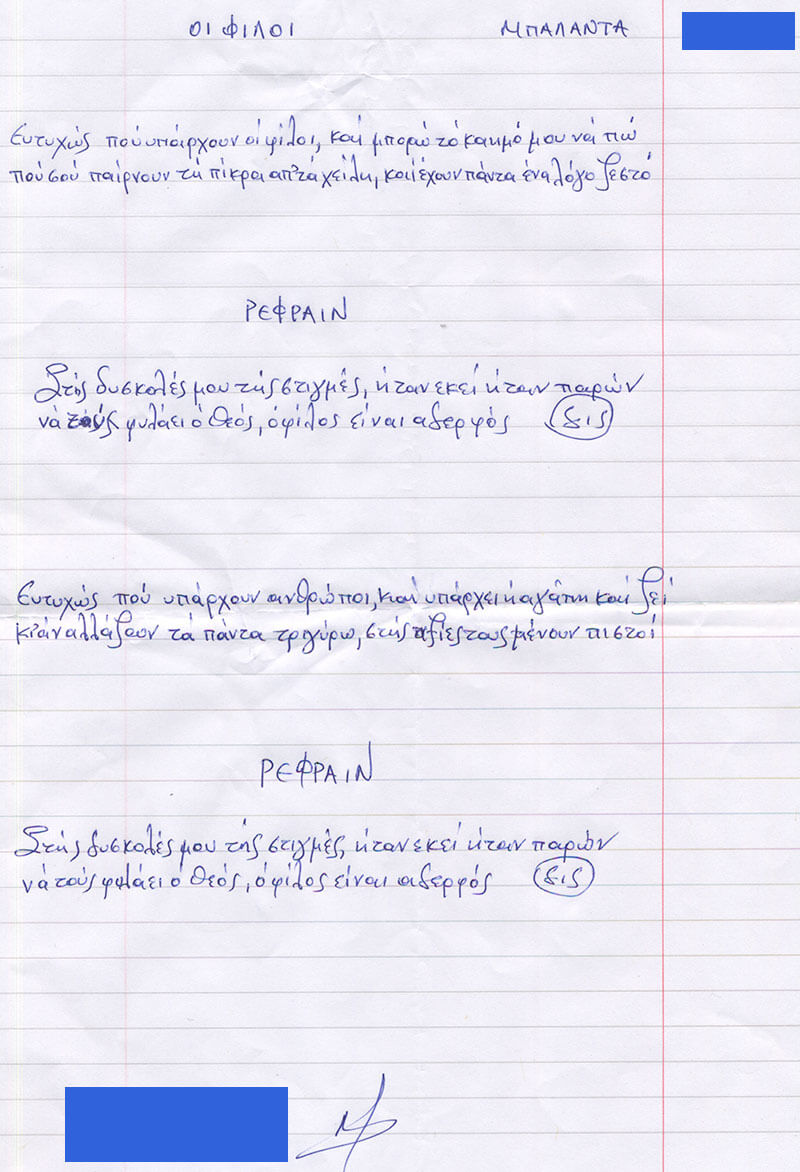 ΟΙ ΦΙΛΟΙ ΜΠΑΛΑΝΤΑ
Ευτυχώς πού υπάρχουν οι φίλοι, καί μπορώ τό καημό μου νά πώ
πού σού παίρνουν τή πίκρα απ' τά χείλη, καί έχουν πάντα ένα λόγο ζεστό
ΡΕΦΡΑΙΝ
Στής δυσκολές μου τής στιγμές, ήταν εκεί ήταν παρών
νά τούς φυλάει ό θεός, ό φίλος είναι αδερφός δις
Ευτυχώς πού υπάρχουν ανθρώποι, καί υπάρχει ή αγάπη καί ζεί
κι άν αλλάξουν τά πάντα τριγύρω, στής αξίες τους μένουν πιστοί
ΡΕΦΡΑΙΝ
Στής δυσκολές μου τής στιγμές, ήταν εκεί ήταν παρών
νά τούς φυλάει ό θεός, ό φίλος είναι αδερφός δις